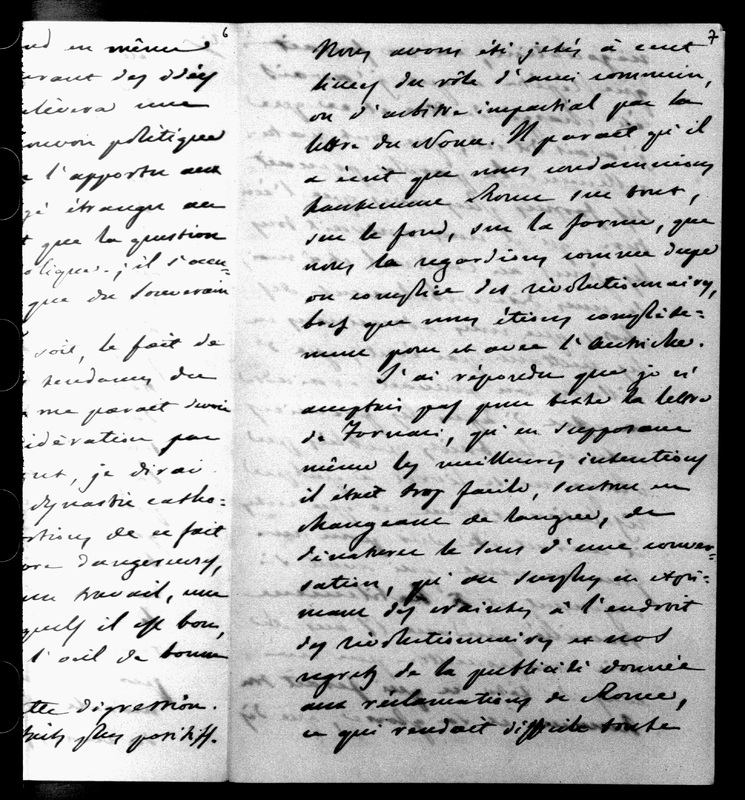 6
nd en même
urant des idées
lèvera une
ouvoir politique
l'apporter aux
gé étranger au
t que la question
olique; il s'accu=
que du Souverain
soit, le fait de
tendances du
me parait devoir
idération par
ent, je dirai
dynastie catho=
rtions de ce fait
ore dangereuses,
un travail, une
quels il est bon,
l'œil de bonne
tte digression.
faits plus positifs.
7
Nous avons été jetés à cent
lieues du rôle d'ami commun,
ou d'arbitre impartial par la
lettre du Nonce. Il parait qu'il
a écrit que nous condamnions
hautement Rome sur tout,
sur le fond, sur la forme, que
nous la regardions comme dupe
ou complice des révolutionnaires,
bref que nous étions complète=
ment pour et avec l'Autriche.
J'ai répondu que je n'
acceptais pas pour texte la lettre
de Fornari, qu'en supposant
même les meilleures intentions
il était trop facile, surtout en
changeant de langue, de
dénaturer le sens d'une conver=
sation, qu'au surplus en expri=
mant des craintes à l'endroit
des révolutionnaires et nos
regrets de la publicité donnée
aux réclamations de Rome,
ce qui rendait difficile toute